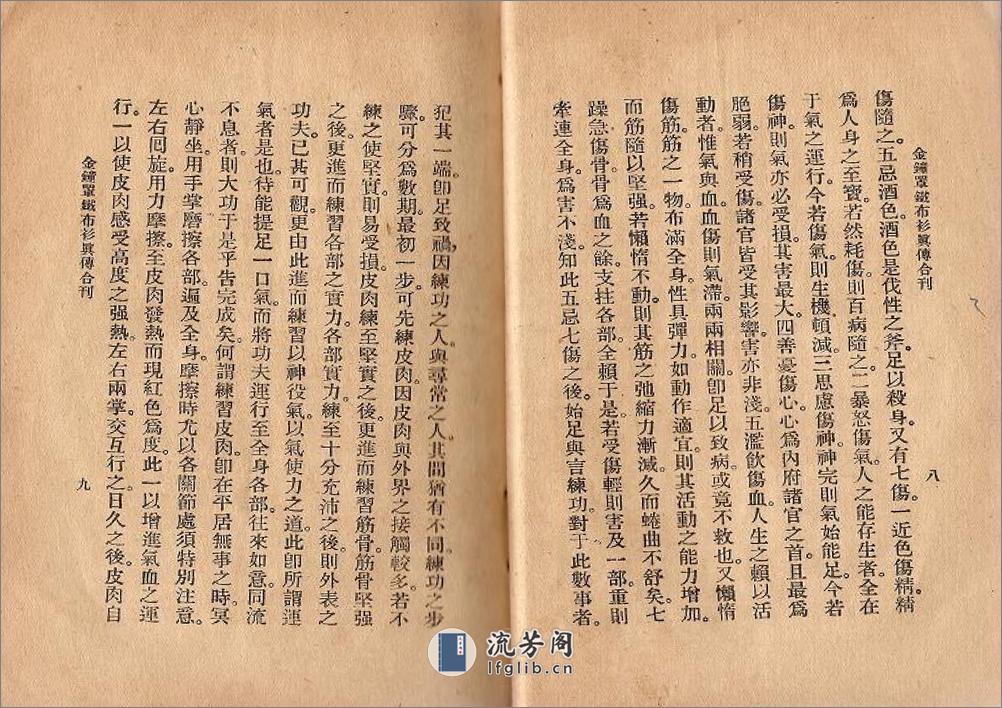 金鐘罩鐵布衫眞傳合刊
八
傷隨之。五忌酒色。酒色是伐性之斧。足以殺身。又有七傷。一近色傷精。精
爲人身之至寶。若然耗傷。則百病隨之。二暴怒傷氣。人之能存生者。全在
于氣之運行。今若傷氣。則生機頓減。三思慮傷神。神完則氣始能足。今若
傷神。則氣亦必受損。其害最大。四善憂傷心。心爲內府諸官之首。且最爲
脆弱。若稍受傷。諸官皆受其影響。害亦非淺。五濫飲傷血。人生之賴以活
動者。惟氣與血。血傷則氣滯。兩兩相關。卽足以致病。或竟不救也。又懶惰
傷筋。筋之一物。布滿全身。性具彈力。如動作適宜。則其活動之能力增加。
而筋隨以堅强。若懶惰不動。則其筋之弛縮力漸減。久而蜷曲不舒矣。七
躁急傷骨。骨爲血之餘。支拄各部。全賴于是。若受傷輕則害及一部。重則
牽連全身。爲害不淺。知此五忌七傷之後。始足與言練功。對于此數事者。
犯其一端。卽足致禍。因練功之人。與尋常之人。其間猶有不同。練功之步
驟。可分爲數期。最初一步。可先練皮肉。因皮肉與外界之接觸較多。若不
練之使堅實。則易受損。皮肉練至堅實之後。更進而練習筋骨。筋骨堅强
之後。更進而練習各部之實力。各部實力。練至十分充沛之後。則外表之
功夫。已甚可觀。更由此進而練習以神役氣。以氣使力之道。此卽所謂運
氣者是也。待能提足一口氣。而將功夫運行至全身各部。往來如意。同流
不息者。則大功于是乎告完成矣。何謂練習皮肉。卽在平居無事之時。冥
心靜坐。用手掌磨擦各部。遍及全身。摩擦時尤以各關節處須特別注意。
左右囘旋。用力摩擦至皮肉發熱而現紅色爲度。此一以增進氣血之運
行。一以使皮肉感受高度之强熱。左右兩掌。交互行之。日久之後。皮肉自
金鐘罩鐵布衫眞傳合刊
九
流芳阁
lfglib.cn